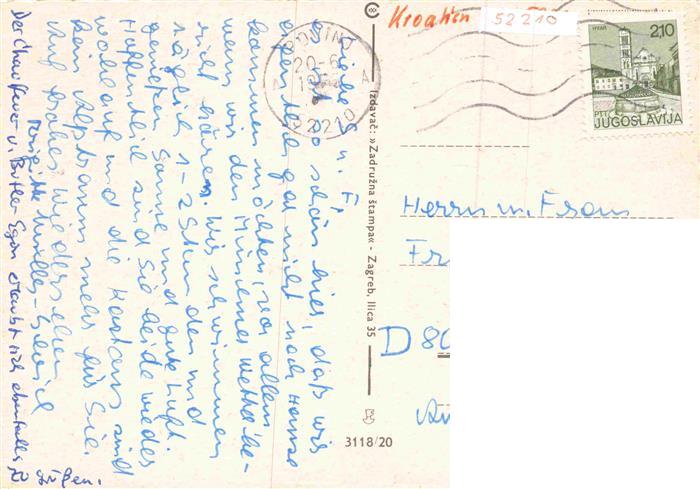 Kroatien
52210
ROVINJ
20-6
52210
HVAR
2,10
PTT
JUGOSLAVIJA
Liebe G. u. F!
Es ist so schön hier, daß wir
eigentlich gar nicht nach Hause
kommen möchten, vor allem
wenn wir den Münchner Wetterbe-
richt hören. Wir schwimmen
täglich 1-2 Stunden und
genießen Sonne und gute Luft.
Hoffentlich sind Sie beide wieder
wohlauf und die Kastens sind
kein Alptraum mehr für Sie.
Auf baldiges Wiedersehen
Brigitte
Der Chauffeur u. Butler Egon erlaubt sich ebenfalls
zu grüßen.
Izdavač: »Zadružna štampa« - Zagreb, Ilica 35
3118/20
Herrn u. Frau
Fr
D 80